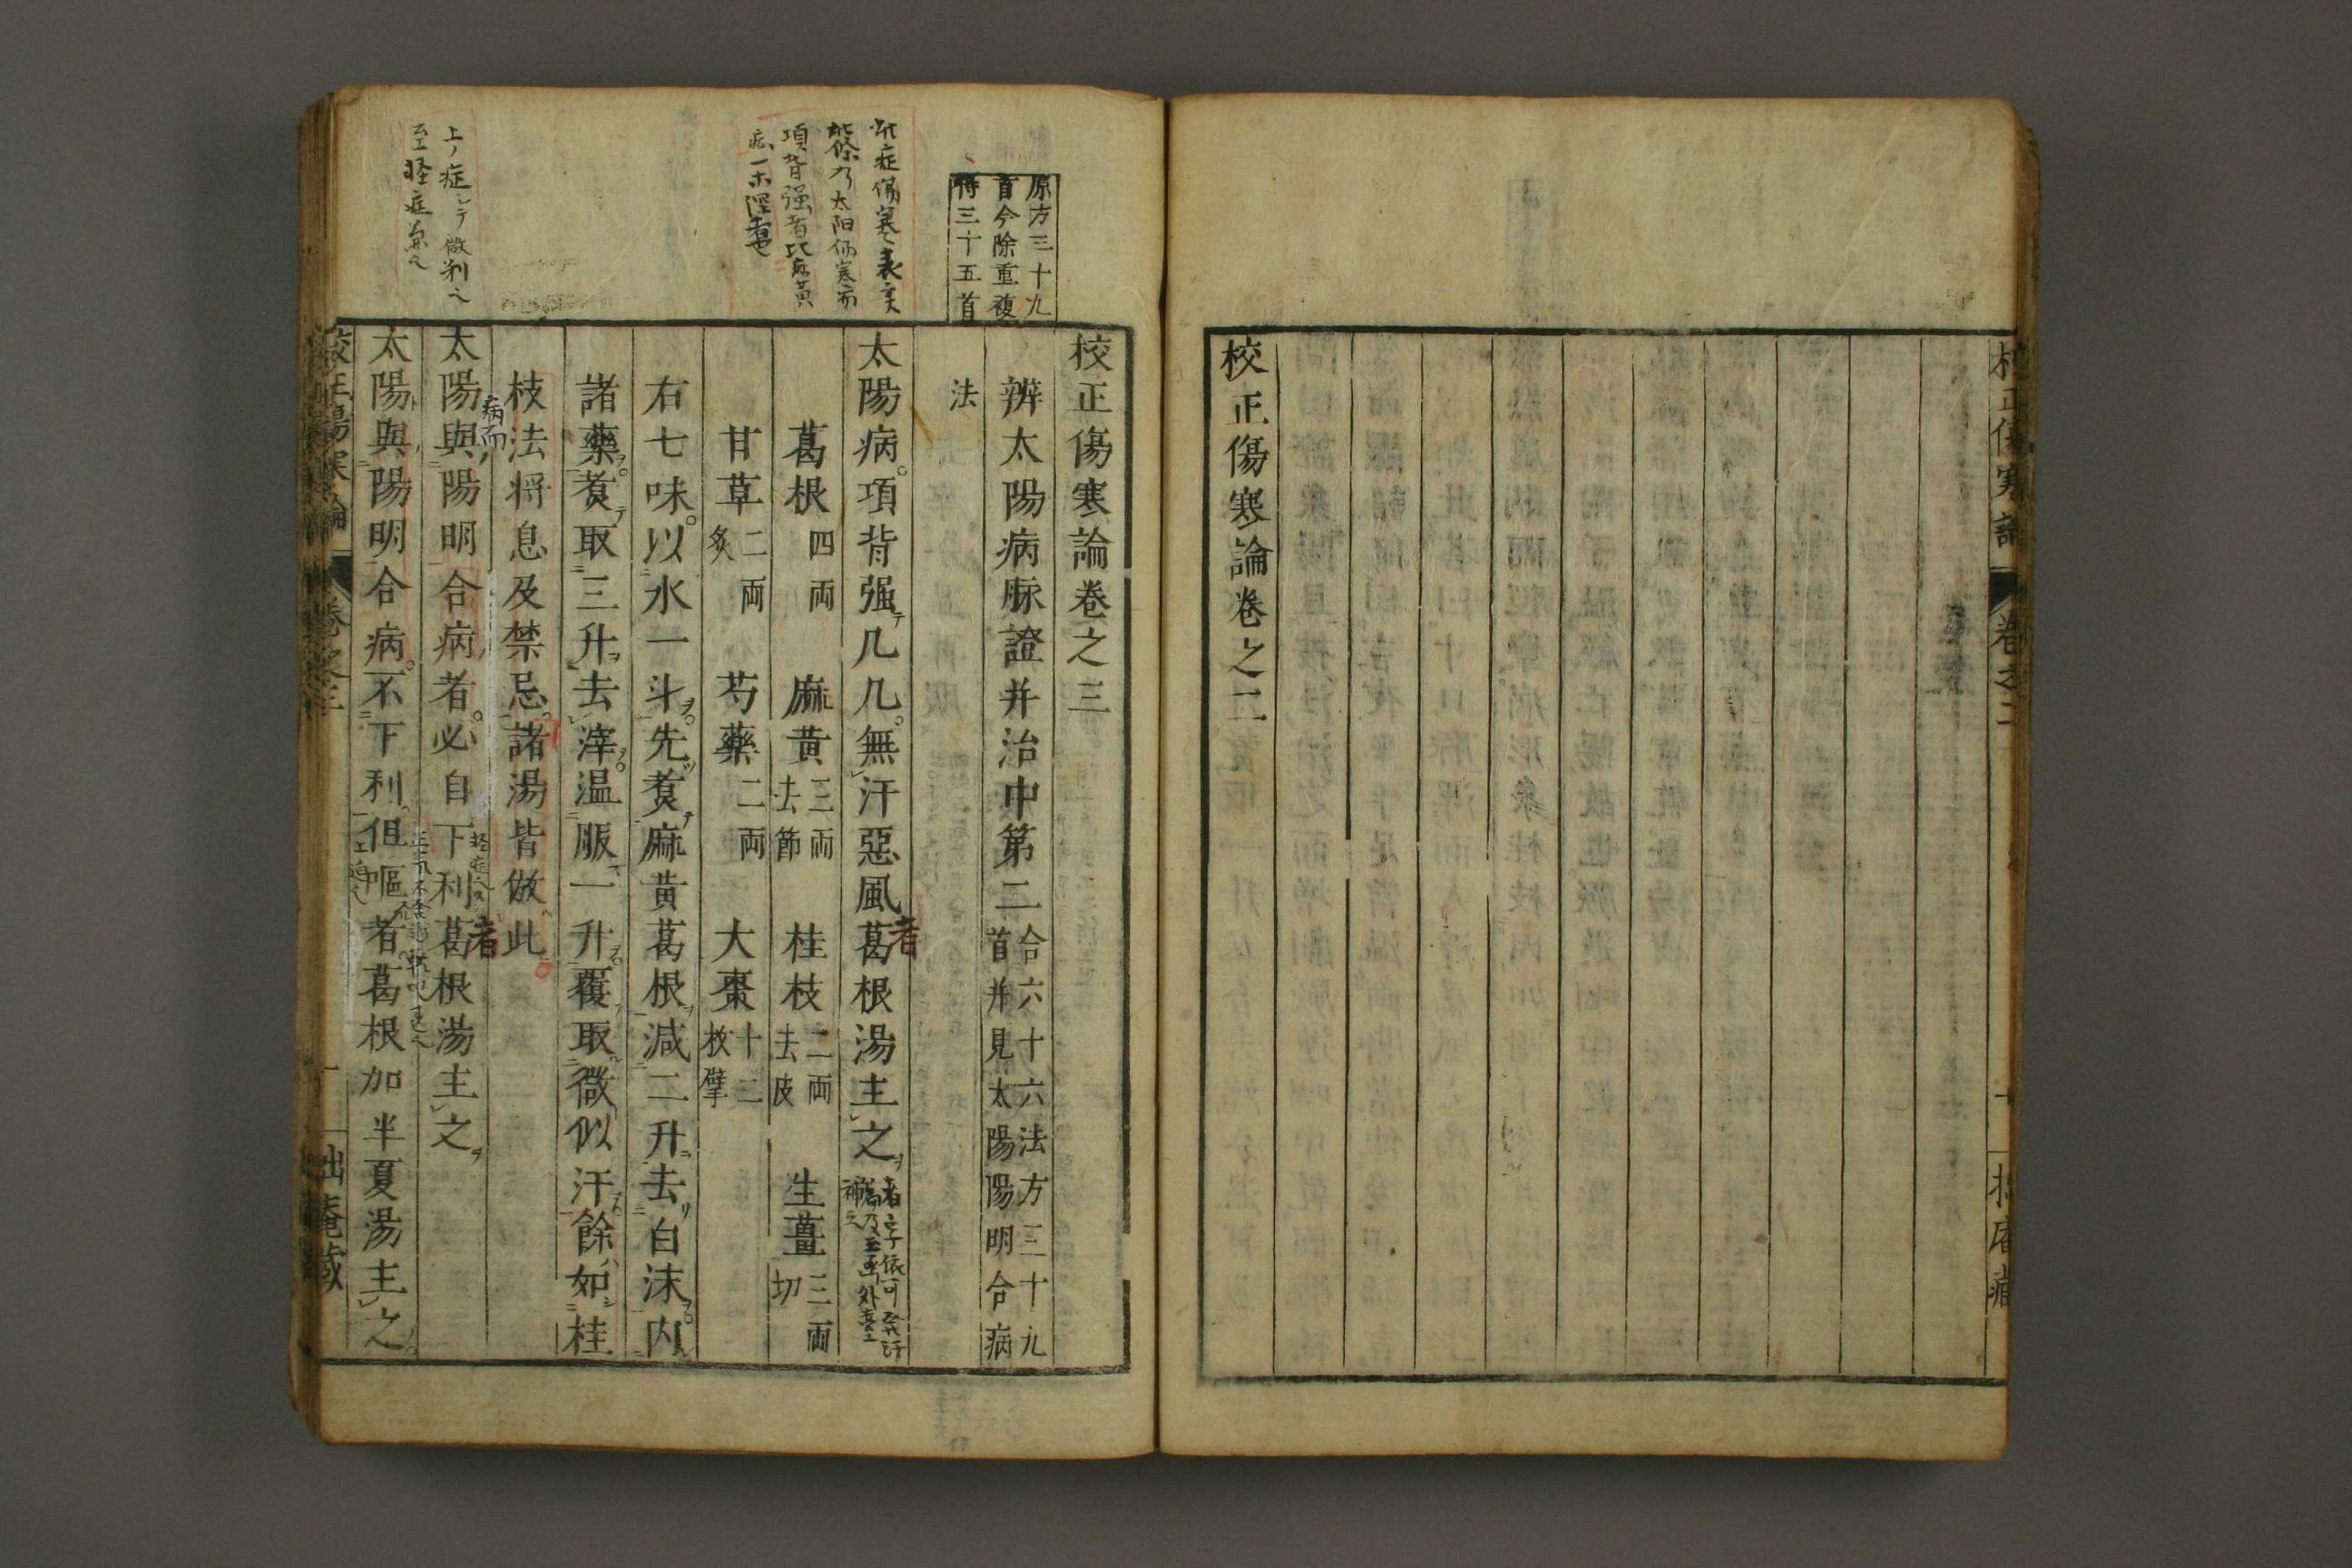 校正傷寒論卷之二
校正傷寒論卷之三
原方三十九
首今除重複
得三十五首
辨太陽病脈證并治中第二 合六十六法方三十九
首并見太陽陽明合病
法
太陽病。項背强几几。無汗惡風葛根湯主之
者
葛根 四両 麻黄 三両 去節 桂枝 二両 去皮 生薑 三両 切
甘草 二両 炙 芍藥 二両 大棗 十二 枚擘
右七味。以水一斗。先煑麻黄葛根。減二升。去白沫。内
諸藥。煑取三升。去滓。温服一升。覆取微似汗。餘如桂
枝法将息及禁忌。諸湯皆倣此。
太陽與陽明合病者。必自下利葛根湯主之
病而
者
太陽與陽明合病。不下利。但嘔者。葛根加半夏湯主之
此症傷寒表実
此條乃太阳傷寒而
項背强者比麻黄
上ノ症ヨリ微剃
校正傷寒論 卷之三 一 拙菴藏